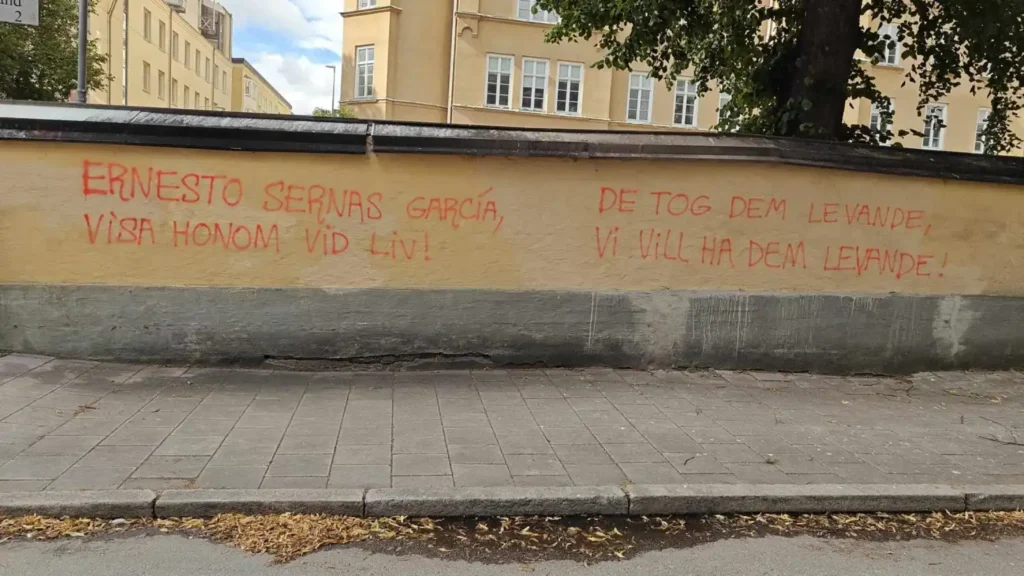 2
ERNESTO SERNAS GARCÍA,
VISA HONOM VID LIV!
DE TOG DEM LEVANDE,
VI VILL HA DEM LEVANDE!